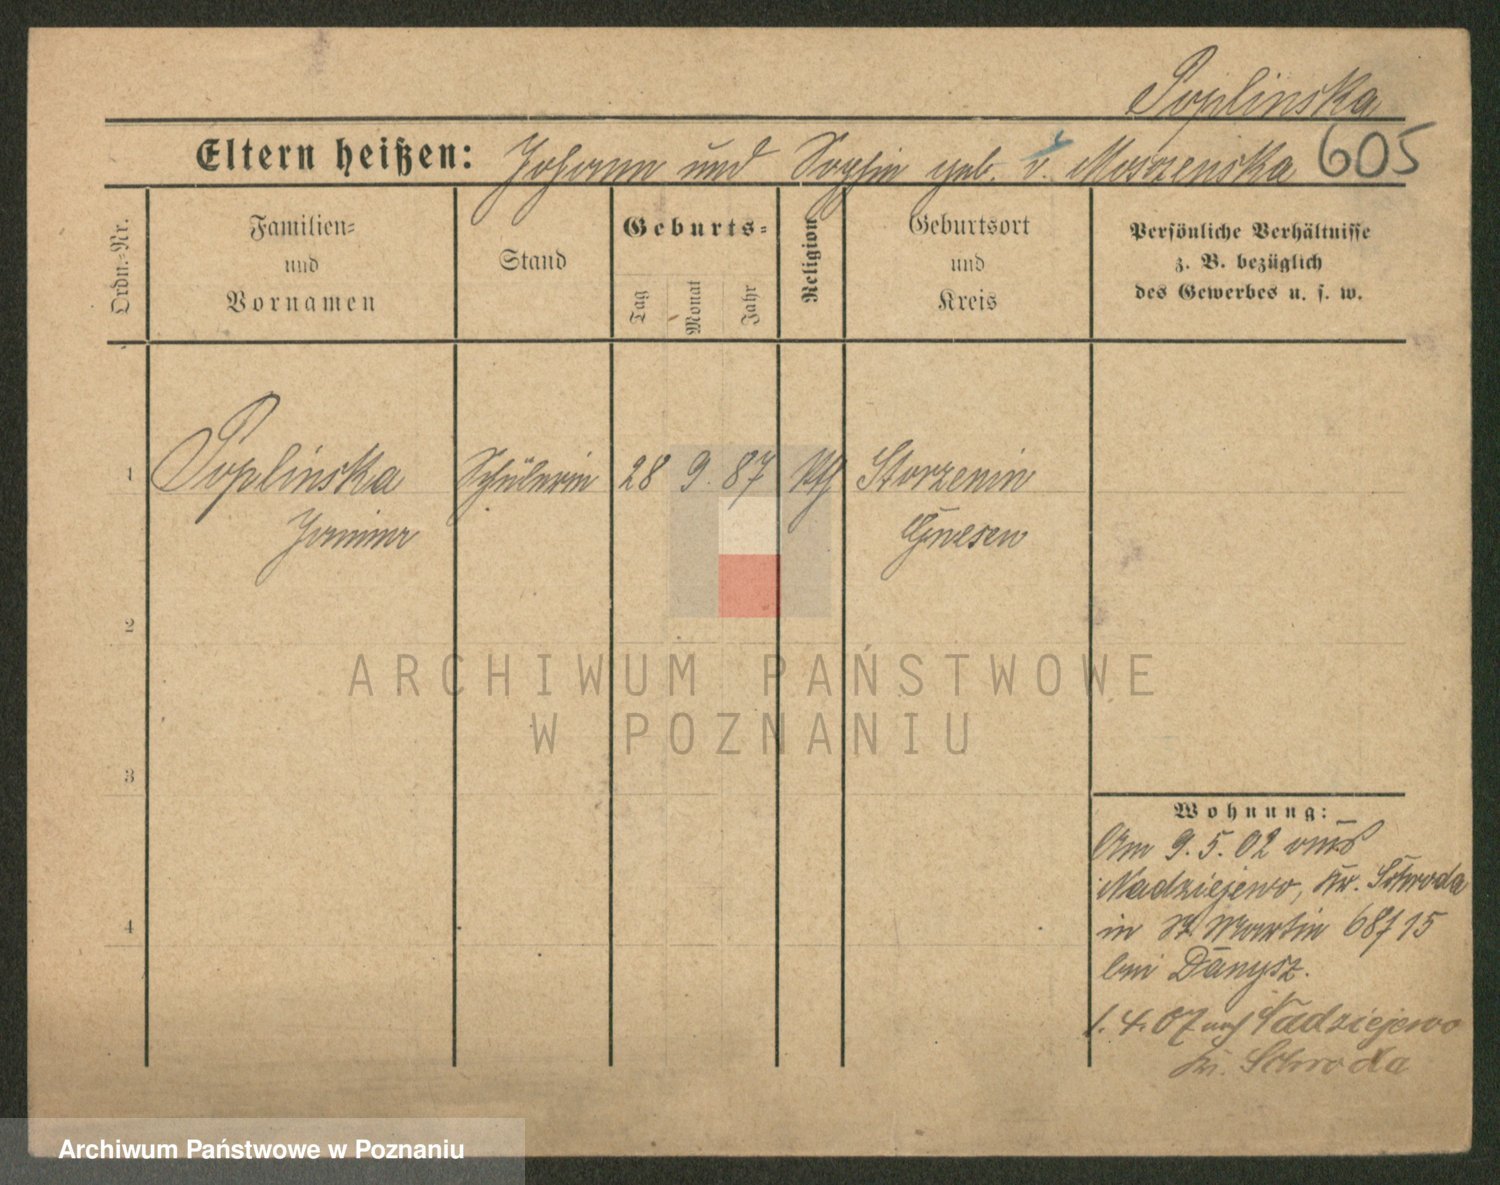 Poplinska
Eltern heißen: Johann und Sophie geb. v. Moszenska 605
Ordn.-Nr.
Familien-
und
Vornamen
Stand
Geburts-
Tag
Monat
Jahr
Religion
Geburtsort
und
Kreis
Persönliche Verhältnisse
z. B. bezüglich
des Gewerbes u. s. w.
1 Poplinska Schülerin 28 9. 87 Storzenin
Janina Gnesen
2
ARCHIWUM PAŃSTWOWE
W POZNANIU
3
4
Wohnung:
Am 9.5.02 aus
Nadziejewo, Kr. Schroda
in St. Martin 68/15
bei Danysz.
1.4.07 nach Nadziejewo
Kr. Schroda
Archiwum Państwowe w Poznaniu